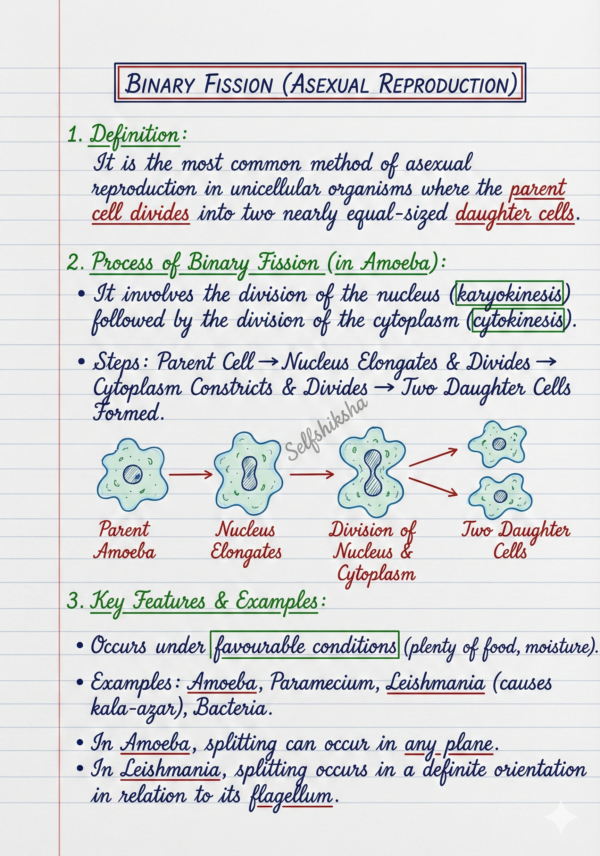 BINARY FISSION (ASEXUAL REPRODUCTION)
1. Definition:
It is the most common method of asexual
reproduction in unicellular organisms where the parent
cell divides into two nearly equal-sized daughter cells.
2. Process of Binary Fission (in Amoeba):
• It involves the division of the nucleus (karyokinesis)
followed by the division of the cytoplasm (cytokinesis).
• Steps: Parent Cell → Nucleus Elongates & Divides →
Cytoplasm Constricts & Divides → Two Daughter Cells
Formed.
Selfshiksha
Parent
Amoeba
Nucleus
Elongates
Division of
Nucleus &
Cytoplasm
Two Daughter
Cells
3. Key Features & Examples:
• Occurs under favourable conditions (plenty of food, moisture).
• Examples: Amoeba, Paramecium, Leishmania (causes
kala-azar), Bacteria.
• In Amoeba, splitting can occur in any plane.
• In Leishmania, splitting occurs in a definite orientation
in relation to its flagellum.